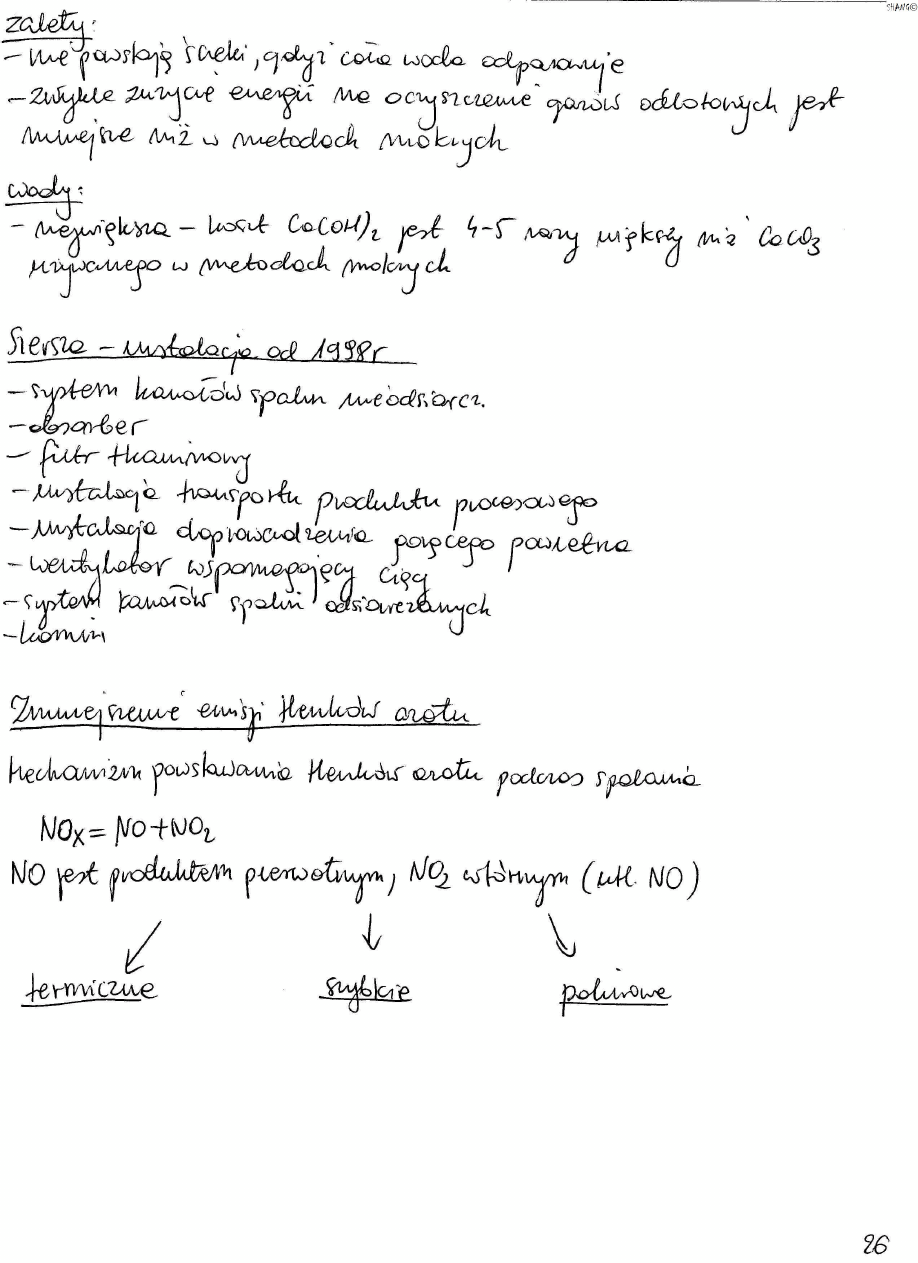 SHANG©
zalety:
- nie powstają ścieki, gdyż cała woda odparowuje
- zwykle zużycie energii na oczyszczenie gazów odlotowych jest
mniejsze niż w metodach mokrych
wady:
- największa - koszt Ca(OH)2 jest 4-5 razy większy niż CaCO3
używanego w metodach mokrych
Siersza - instalacja od 1998r
- system kanałów spalin nieodsiarcz.
- absorber
- filtr tkaninowy
- instalacja transportu produktu procesowego
- instalacja doprowadzenia gorącego powietrza
- wentylator wspomagający ciąg
- system kanałów spalin odsiarczanych
- komin
Zmniejszenie emisji tlenków azotu
Mechanizm powstawania tlenków azotu podczas spalania
NOx = NO + NO2
NO jest produktem pierwotnym, NO2 wtórnym (utl. NO)
termiczne szybkie paliwowe
26